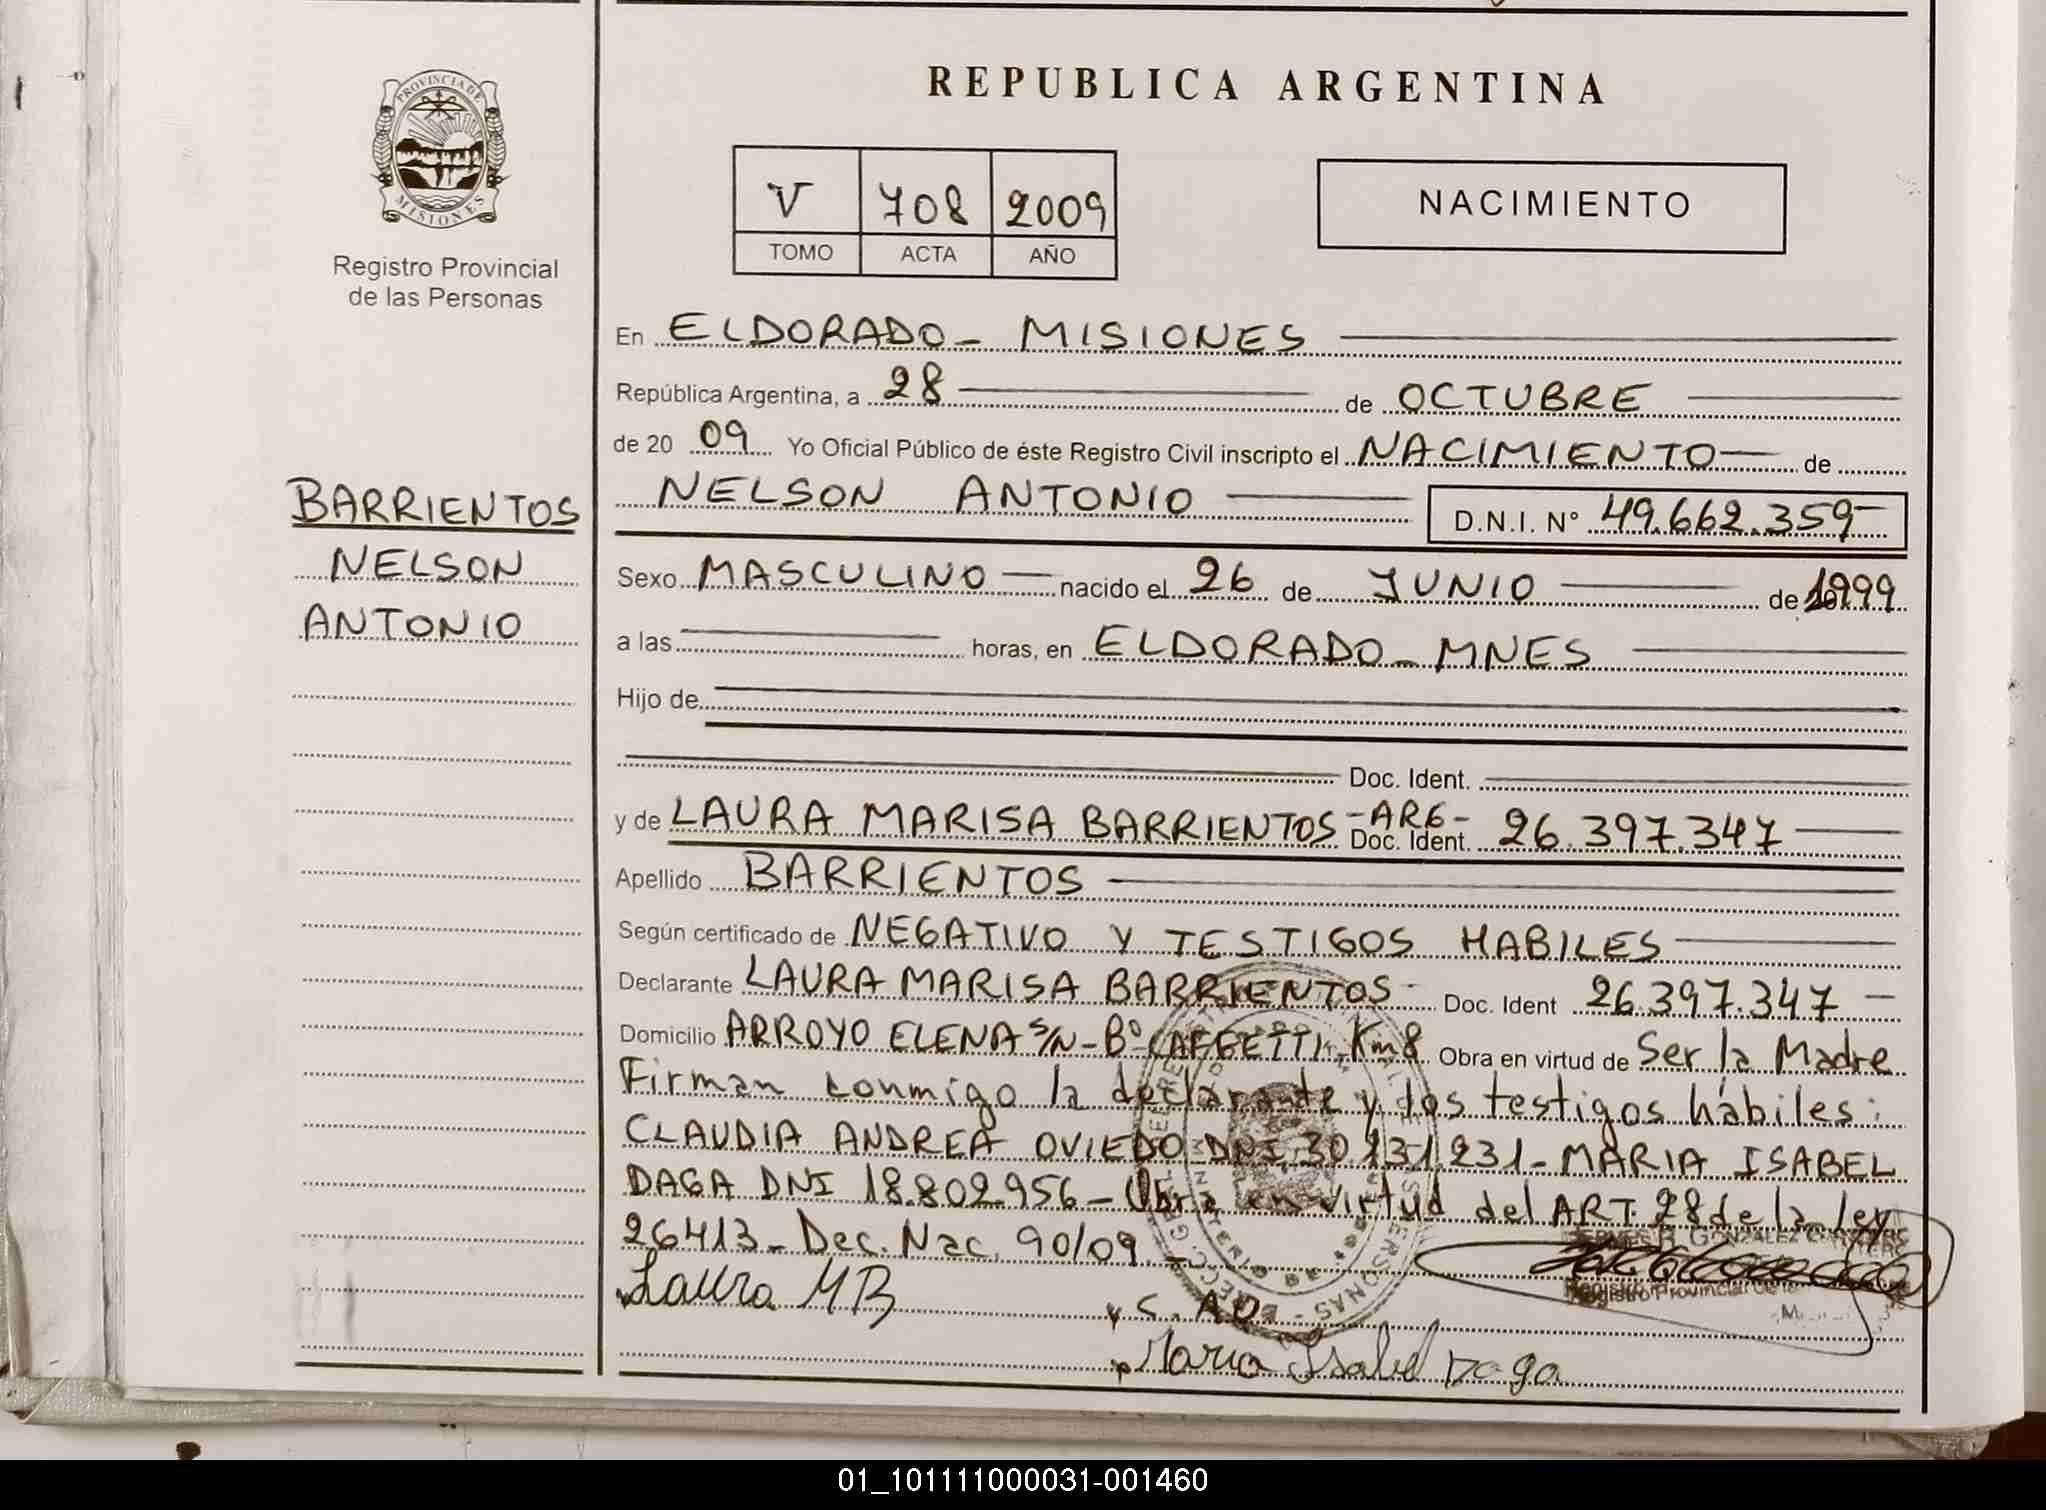 PROVINCIA DE
MISIONES
Registro Provincial
de las Personas
BARRIENTOS
NELSON
ANTONIO
REPUBLICA ARGENTINA
V 708 2009
TOMO ACTA AÑO
NACIMIENTO
En ELDORADO - MISIONES
República Argentina, a 28 de OCTUBRE
de 20 09 Yo Oficial Público de éste Registro Civil inscripto el NACIMIENTO de
NELSON ANTONIO D.N.I. Nº 49.662.359-
Sexo MASCULINO nacido el 26 de JUNIO de 1999
a las horas, en ELDORADO - MNES
Hijo de
Doc. Ident.
y de LAURA MARISA BARRIENTOS -ARG- Doc. Ident. 26.397.347
Apellido BARRIENTOS
Según certificado de NEGATIVO Y TESTIGOS HABILES
Declarante LAURA MARISA BARRIENTOS - Doc. Ident 26.397.347 -
Domicilio ARROYO ELENA S/N - Bº CAFFETTI - Km 8 Obra en virtud de Ser la Madre
Firman conmigo la declarante y dos testigos hábiles:
CLAUDIA ANDREA OVIEDO DNI 30.131.231 - MARIA ISABEL
DAGA DNI 18.802.956 - Obra en virtud del ART. 28 de la Ley
26413 - Dec. Nac. 90/09 -
GONZALEZ
Registro Provincial de las
Laura MB
C. A O.
Maria Isabel Daga
01_101111000031-001460